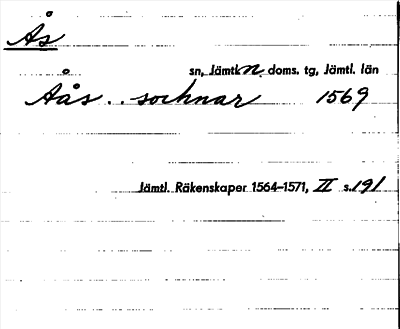 Ås
sn, Jämtl. n. doms. tg, Jämtl. län
Aås .. sochnar 1569
Jämtl. Räkenskaper 1564–1571, II s. 191